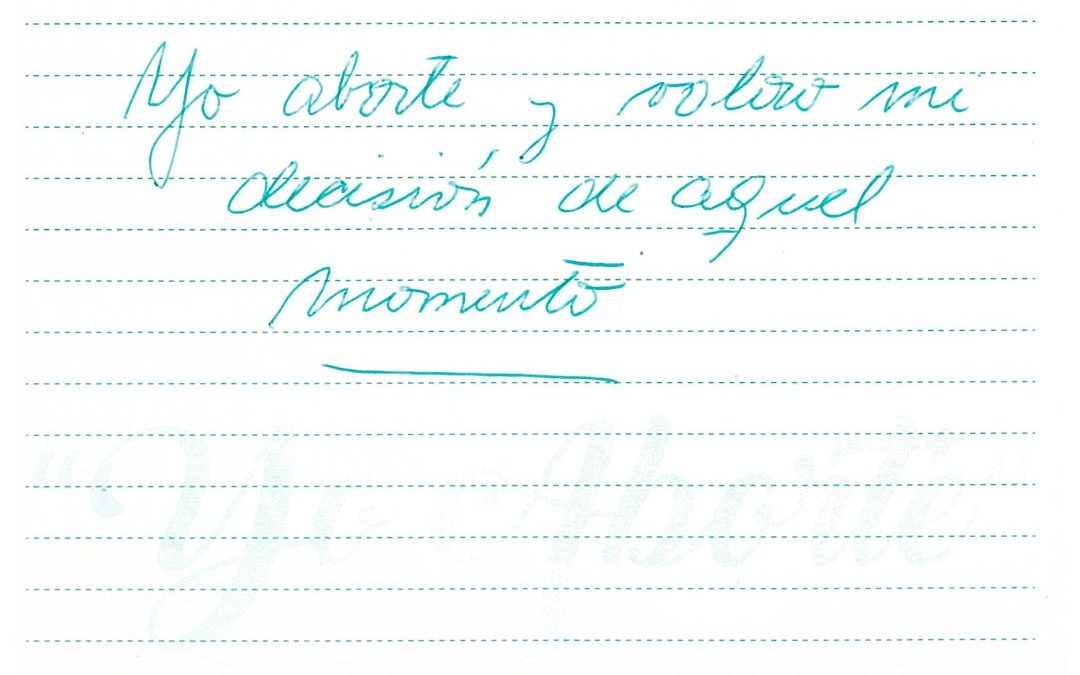 Yo aborte y valoro mi
decisión de aquel
momento
"Yo Aborté"